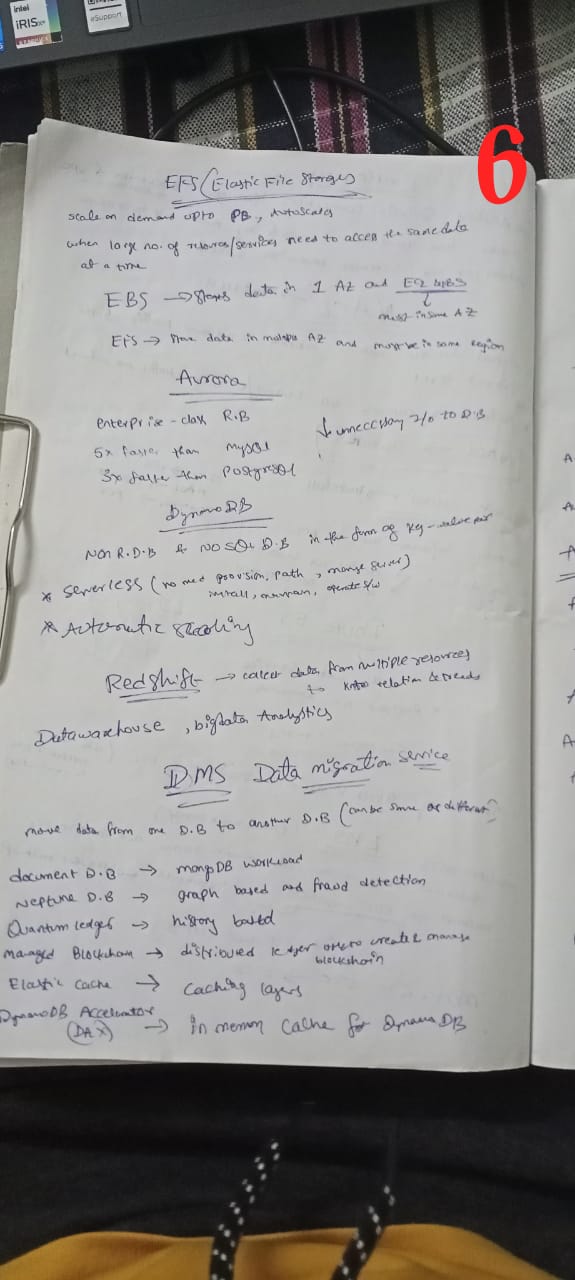 intel
iRISxe
eSupport
6
EFS (Elastic File Storges)
scale on demand upto PB, AutoScales
when large no. of resources/services need to access the same data
at a time
EBS → Stores data in 1 AZ and EC2 & EBS
must in same AZ
EFS → Store data in multiple AZ and must be in same Region
Aurora
enterprise-class R.B
↓ unnecessary I/O to D.B
5x faster than MySQL
3x faster than PostgreSQL
Dynamo DB
Non R.D.B & NO SQL D.B in the form of key-value pair
* Serverless (no need provision, path, manage server)
install, maintain, operate S/w
* Automatic Scaling
Redshift → collect data from multiple resources
to relation & trends
Datawarehouse, bigdata Analystics
DMS Data migration service
move data from one D.B to another D.B (can be same or different)
document D.B → mongoDB workload
Neptune D.B → graph based and fraud detection
Quantum ledger → history based
Managed Blockchain → distribured ledger to create & manage
blockchain
Elastic Cache → Caching layers
DynamoDB Accelerator
(DAX) → in memory Cache for Dynamo DB
A
A
A